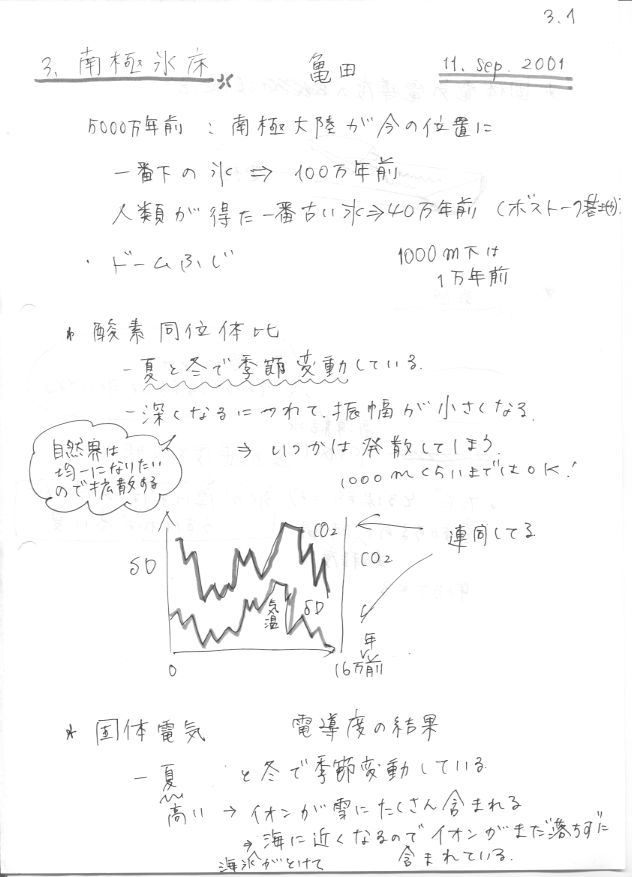 3.1
3. 南極氷床 亀田 11. Sep. 2001
5000万年前 : 南極大陸が今の位置に
一番下の氷 ⇒ 100万年前
人類が得た一番古い氷⇒40万年前 (ボストーク基地)
・ドームふじ 1000m下は
1万年前
* 酸素同位体比
- 夏と冬で季節変動している.
- 深くなるにつれて、振幅が小さくなる.
⇒ いつかは発散してしまう.
1000mくらいまではOK!
自然界は
均一になりたい
ので拡散する
δD
CO2
CO2
連同してる
気温
δD
年
0
16万前
* 固体電気 電導度の結果
- 夏 と冬で季節変動している
高い → イオンが雪にたくさん含まれる
→ 海に近くなるのでイオンがまだ"落ちず"に
海氷がとけて 含まれている.